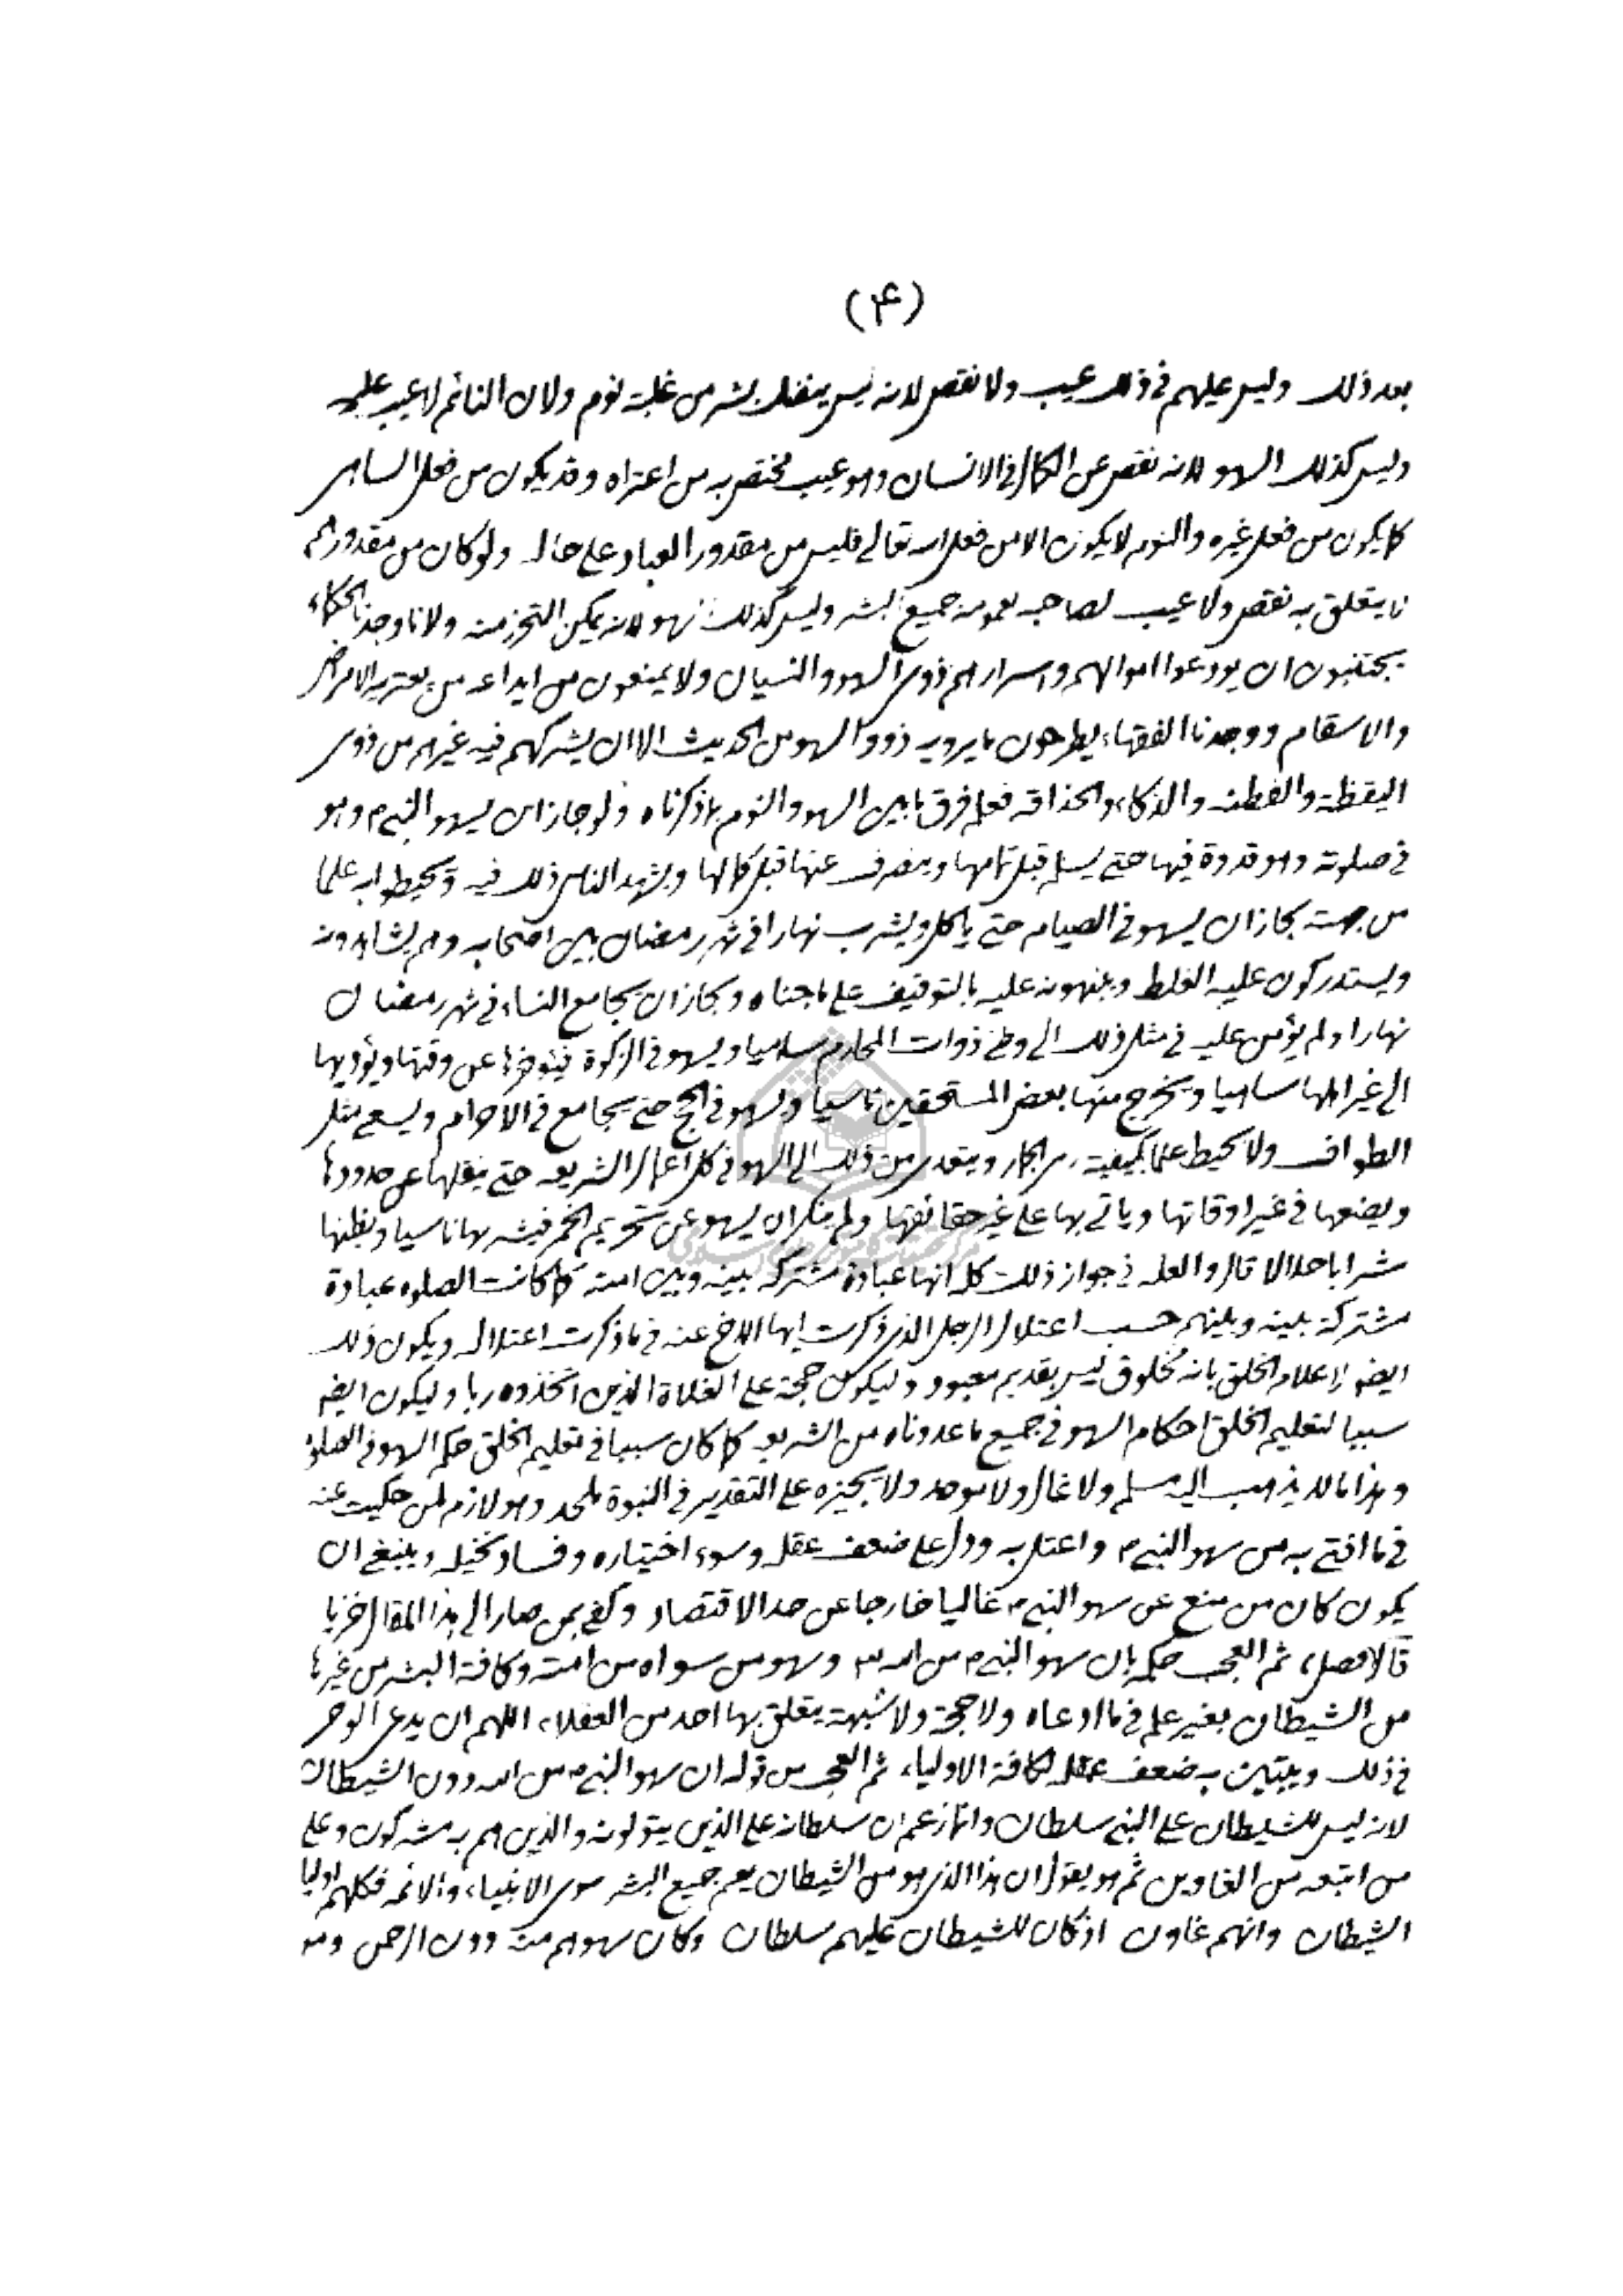 (۴)
بعد ذلك وليس عليهم في ذلك عيب ولا نقص لانه ليس ينفك بشر من غلبة نوم ولان النائم لا عيب عليه
وليس كذلك السهو لانه نقص عن الكمال في الانسان وهو عيب مختص به من اعتراه وقد يكون من فعل الساهي
كما يكون من فعل غيره والنوم لا يكون الا من فعل الله تعالى فليس من مقدور العباد على حال ولو كان من مقدورهم
ما يتعلق به نقص ولا عيب لصاحبه لعمومه جميع البشر وليس كذلك السهو لانه يمكن التحرز منه ولانا وجدنا الحكماء
يجتنبون ان يودعوا اموالهم واسرارهم ذوى السهو والنسيان ولا يمنعون من ايداعه من يعتريه الامراض
والاسقام ووجدنا الفقهاء يطرحون ما يرويه ذووا السهو من الحديث الا ان يشركهم فيه غيرهم من ذوى
اليقظة والفطنه والذكاء والحذاقه فعلم فرق ما بين السهو والنوم بما ذكرناه ولو جاز ان يسهو النبي م وهو
في صلوته وهو قدوة فيها حتى يسلم قبل تمامها وينصرف عنها قبل كمالها ويشهد الناس ذلك فيه ويحيطوا به علما
من جهته لجاز ان يسهو في الصيام حتى ياكل ويشرب نهارا في شهر رمضان بين اصحابه وهم يشاهدونه
ويستدركون عليه الغلط وينبهونه عليه بالتوقيف على ما جناه ولجاز ان يجامع النساء في شهر رمضان
نهارا ولم يؤمن عليه في مثل ذلك الى وطى ذوات المحارم ساهيا ويسهو في الزكوة فيؤخرها عن وقتها ويؤديها
الى غير اهلها ساهيا ويخرج منها بعض المستحقين ناسيا ويسهو في الحج حتى يجامع في الاحرام ويسعى مثل
الطواف ولا يحيط علما بكيفية رمى الجمار ويتعدى من ذلك الى السهو في كل اعمال الشريعه حتى ينقلها عن حدودها
ويضعها في غير اوقاتها وياتي بها على غير حقائقها ولم ينكر ان يسهو عن تحريم الخمر فيشربها ناسيا ويظنها
شرابا حلالا قال والعله في جواز ذلك كله انها عبادة مشتركه بينه وبين امته كما كانت الصلوه عبادة
مشتركة بينه وبينهم حسب اعتلال الرجل الذى ذكرت ايها الاخ عنه في ما ذكرت اعتلاله ويكون ذلك
ايضو لاعلام الخلق بانه مخلوق ليس بقديم معبود وليكون حجة على الغلاة الذين اتخذوه ربا وليكون ايضو
سببا لتعليم الخلق احكام السهو في جميع ما عددناه من الشريعه كما كان سببا في تعليم الخلق حكم السهو في الصلوة
وهذا ما لا يذهب اليه مسلم ولا غال ولا موحد ولا يجيزه على التقدير في النبوة ملحد وهو لازم لمن حكيت عنه
في ما افتى به من سهو النبي م واعتل به ودل على ضعف عقله وسوء اختياره وفساد تخيله وينبغي ان
يكون كان من منع عن سهو النبي م غاليا خارجا عن حد الاقتصاد وكفى بمن صار الى هذا المقال خزيا
قال فصل، ثم العجب حكمه بان سهو النبي م من الله سه وسهو من سواه من امته وكافة البشر من غيرها
من الشيطان بغير علم في ما ادعاه ولا حجة ولا شبهة يتعلق بها احد من العقلاء، اللهم ان يدعى الوحى
في ذلك ويبتين به ضعف عقله لكافة الاولياء، ثم العجب من قوله ان سهو النبي م من الله دون الشيطان
لانه ليس للشيطان على النبي سلطان وانما زعم ان سلطانه على الذين يتولونه والذين هم به مشركون وعلى
من اتبعه من الغاوين ثم هو يقول ان هذا الذى هو من الشيطان يعم جميع البشر سوى الانبياء، والائمه فكلهم اوليا
الشيطان وانهم غاوون اذ كان للشيطان عليهم سلطان وكان سهوهم منه دون الرحمن ومن